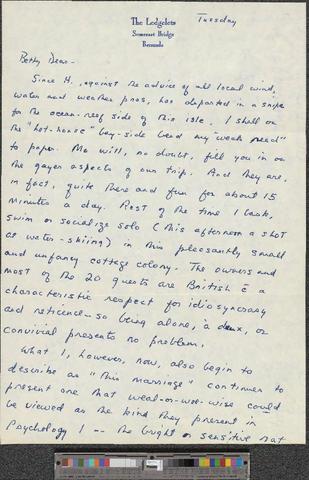 The Ledgelets
Somerset Bridge
Bermuda
Tuesday
Betty Dear -
Since H., against the advice of all local wind,
water and weather pros, has departed in a snipe
for the ocean-reef side of this isle, I shall on
the "hot-house" bay-side bend my "weak reed"
to paper. Mo will, no doubt, fill you in on
the gayer aspects of our trip. And they are,
in fact, quite there and fun for about 15
minutes a day. Rest of the time I bask,
swim or socialize solo (this afternoon a shot
at water-skiing) in this pleasantly small
and unfancy cottage colony. The owners and
most of the 20 guests are British c̄ a
characteristic respect for idiosyncrasy
and reticence - so being alone, à deux, or
convivial presents no problem.
What I, however, now, also begin to
describe as "this marriage" continues to
present one that weal-or-woe-wise could
be viewed as the kind they present in
Psychology 1 -- the bright or sensitive rat